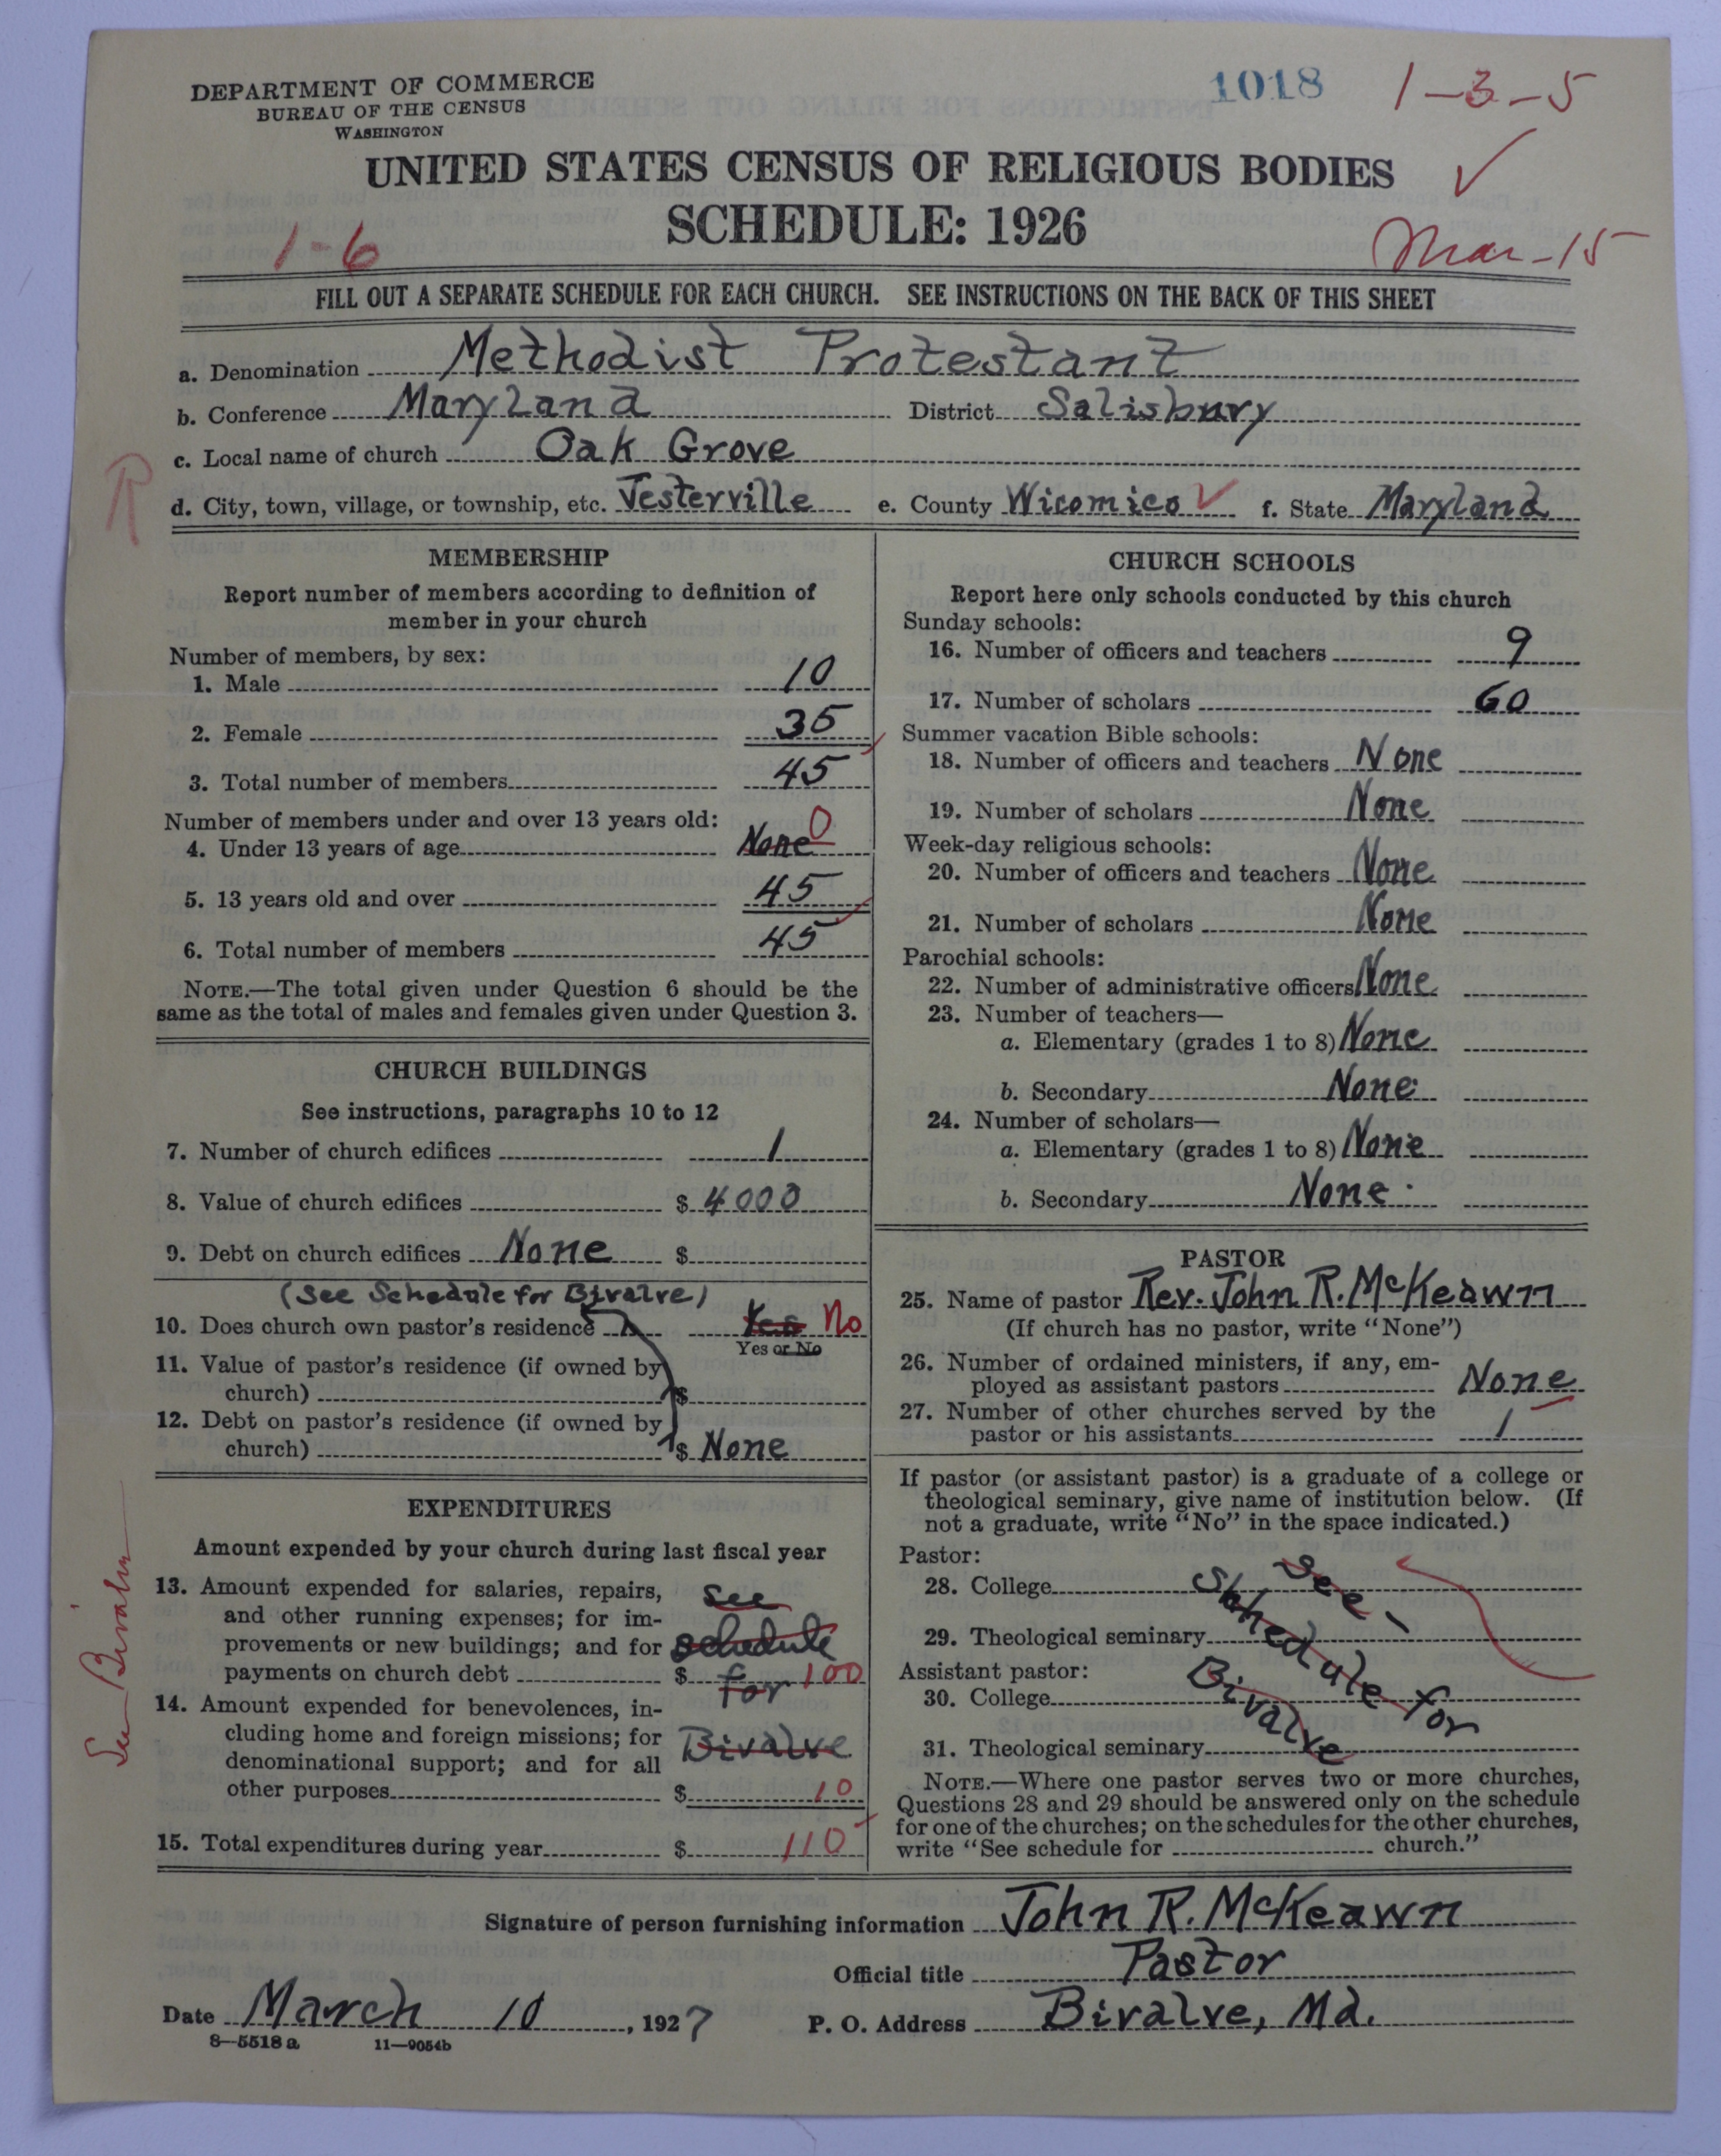 DEPARTMENT OF COMMERCE
BUREAU OF THE CENSUS
WASHINGTON
1018
1-3-5
UNITED STATES CENSUS OF RELIGIOUS BODIES
SCHEDULE: 1926
1-6
Mar-15
FILL OUT A SEPARATE SCHEDULE FOR EACH CHURCH. SEE INSTRUCTIONS ON THE BACK OF THIS SHEET
a. Denomination Methodist Protestant
b. Conference Maryland District Salisbury
c. Local name of church Oak Grove
R
d. City, town, village, or township, etc. Jesterville e. County Wicomico f. State Maryland
MEMBERSHIP
Report number of members according to definition of
member in your church
Number of members, by sex:
1. Male 10
2. Female 35
3. Total number of members 45
Number of members under and over 13 years old:
4. Under 13 years of age None 0
5. 13 years old and over 45
6. Total number of members 45
NOTE.—The total given under Question 6 should be the
same as the total of males and females given under Question 3.
CHURCH BUILDINGS
See instructions, paragraphs 10 to 12
7. Number of church edifices 1
8. Value of church edifices $ 4000
9. Debt on church edifices None $
(See Schedule for Bivalve)
10. Does church own pastor's residence Yes No
Yes or No
11. Value of pastor's residence (if owned by
church) $
12. Debt on pastor's residence (if owned by
church) $ None
EXPENDITURES
Amount expended by your church during last fiscal year
13. Amount expended for salaries, repairs, See
and other running expenses; for im-
provements or new buildings; and for schedule
payments on church debt $ for 100
14. Amount expended for benevolences, in-
cluding home and foreign missions; for Bivalve
denominational support; and for all
other purposes $ 10
15. Total expenditures during year $ 110
See Bivalve
CHURCH SCHOOLS
Report here only schools conducted by this church
Sunday schools:
16. Number of officers and teachers 9
17. Number of scholars 60
Summer vacation Bible schools:
18. Number of officers and teachers None
19. Number of scholars None
Week-day religious schools:
20. Number of officers and teachers None
21. Number of scholars None
Parochial schools:
22. Number of administrative officers None
23. Number of teachers—
a. Elementary (grades 1 to 8) None
b. Secondary None
24. Number of scholars—
a. Elementary (grades 1 to 8) None
b. Secondary None
PASTOR
25. Name of pastor Rev. John R. McKeawn
(If church has no pastor, write "None")
26. Number of ordained ministers, if any, em-
ployed as assistant pastors None
27. Number of other churches served by the
pastor or his assistants 1
If pastor (or assistant pastor) is a graduate of a college or
theological seminary, give name of institution below. (If
not a graduate, write "No" in the space indicated.)
Pastor:
28. College
29. Theological seminary
Assistant pastor:
30. College
31. Theological seminary
See-
Shhedule for
Bivalve
NOTE.—Where one pastor serves two or more churches,
Questions 28 and 29 should be answered only on the schedule
for one of the churches; on the schedules for the other churches,
write "See schedule for church."
Signature of person furnishing information John R. McKeawn
Official title Pastor
Date March 10, 1927 P. O. Address Bivalve, Md.
8—5518 a 11—9054b